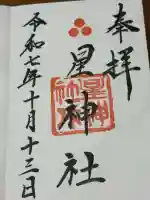 奉拝
星神社
令和七年十月十三日